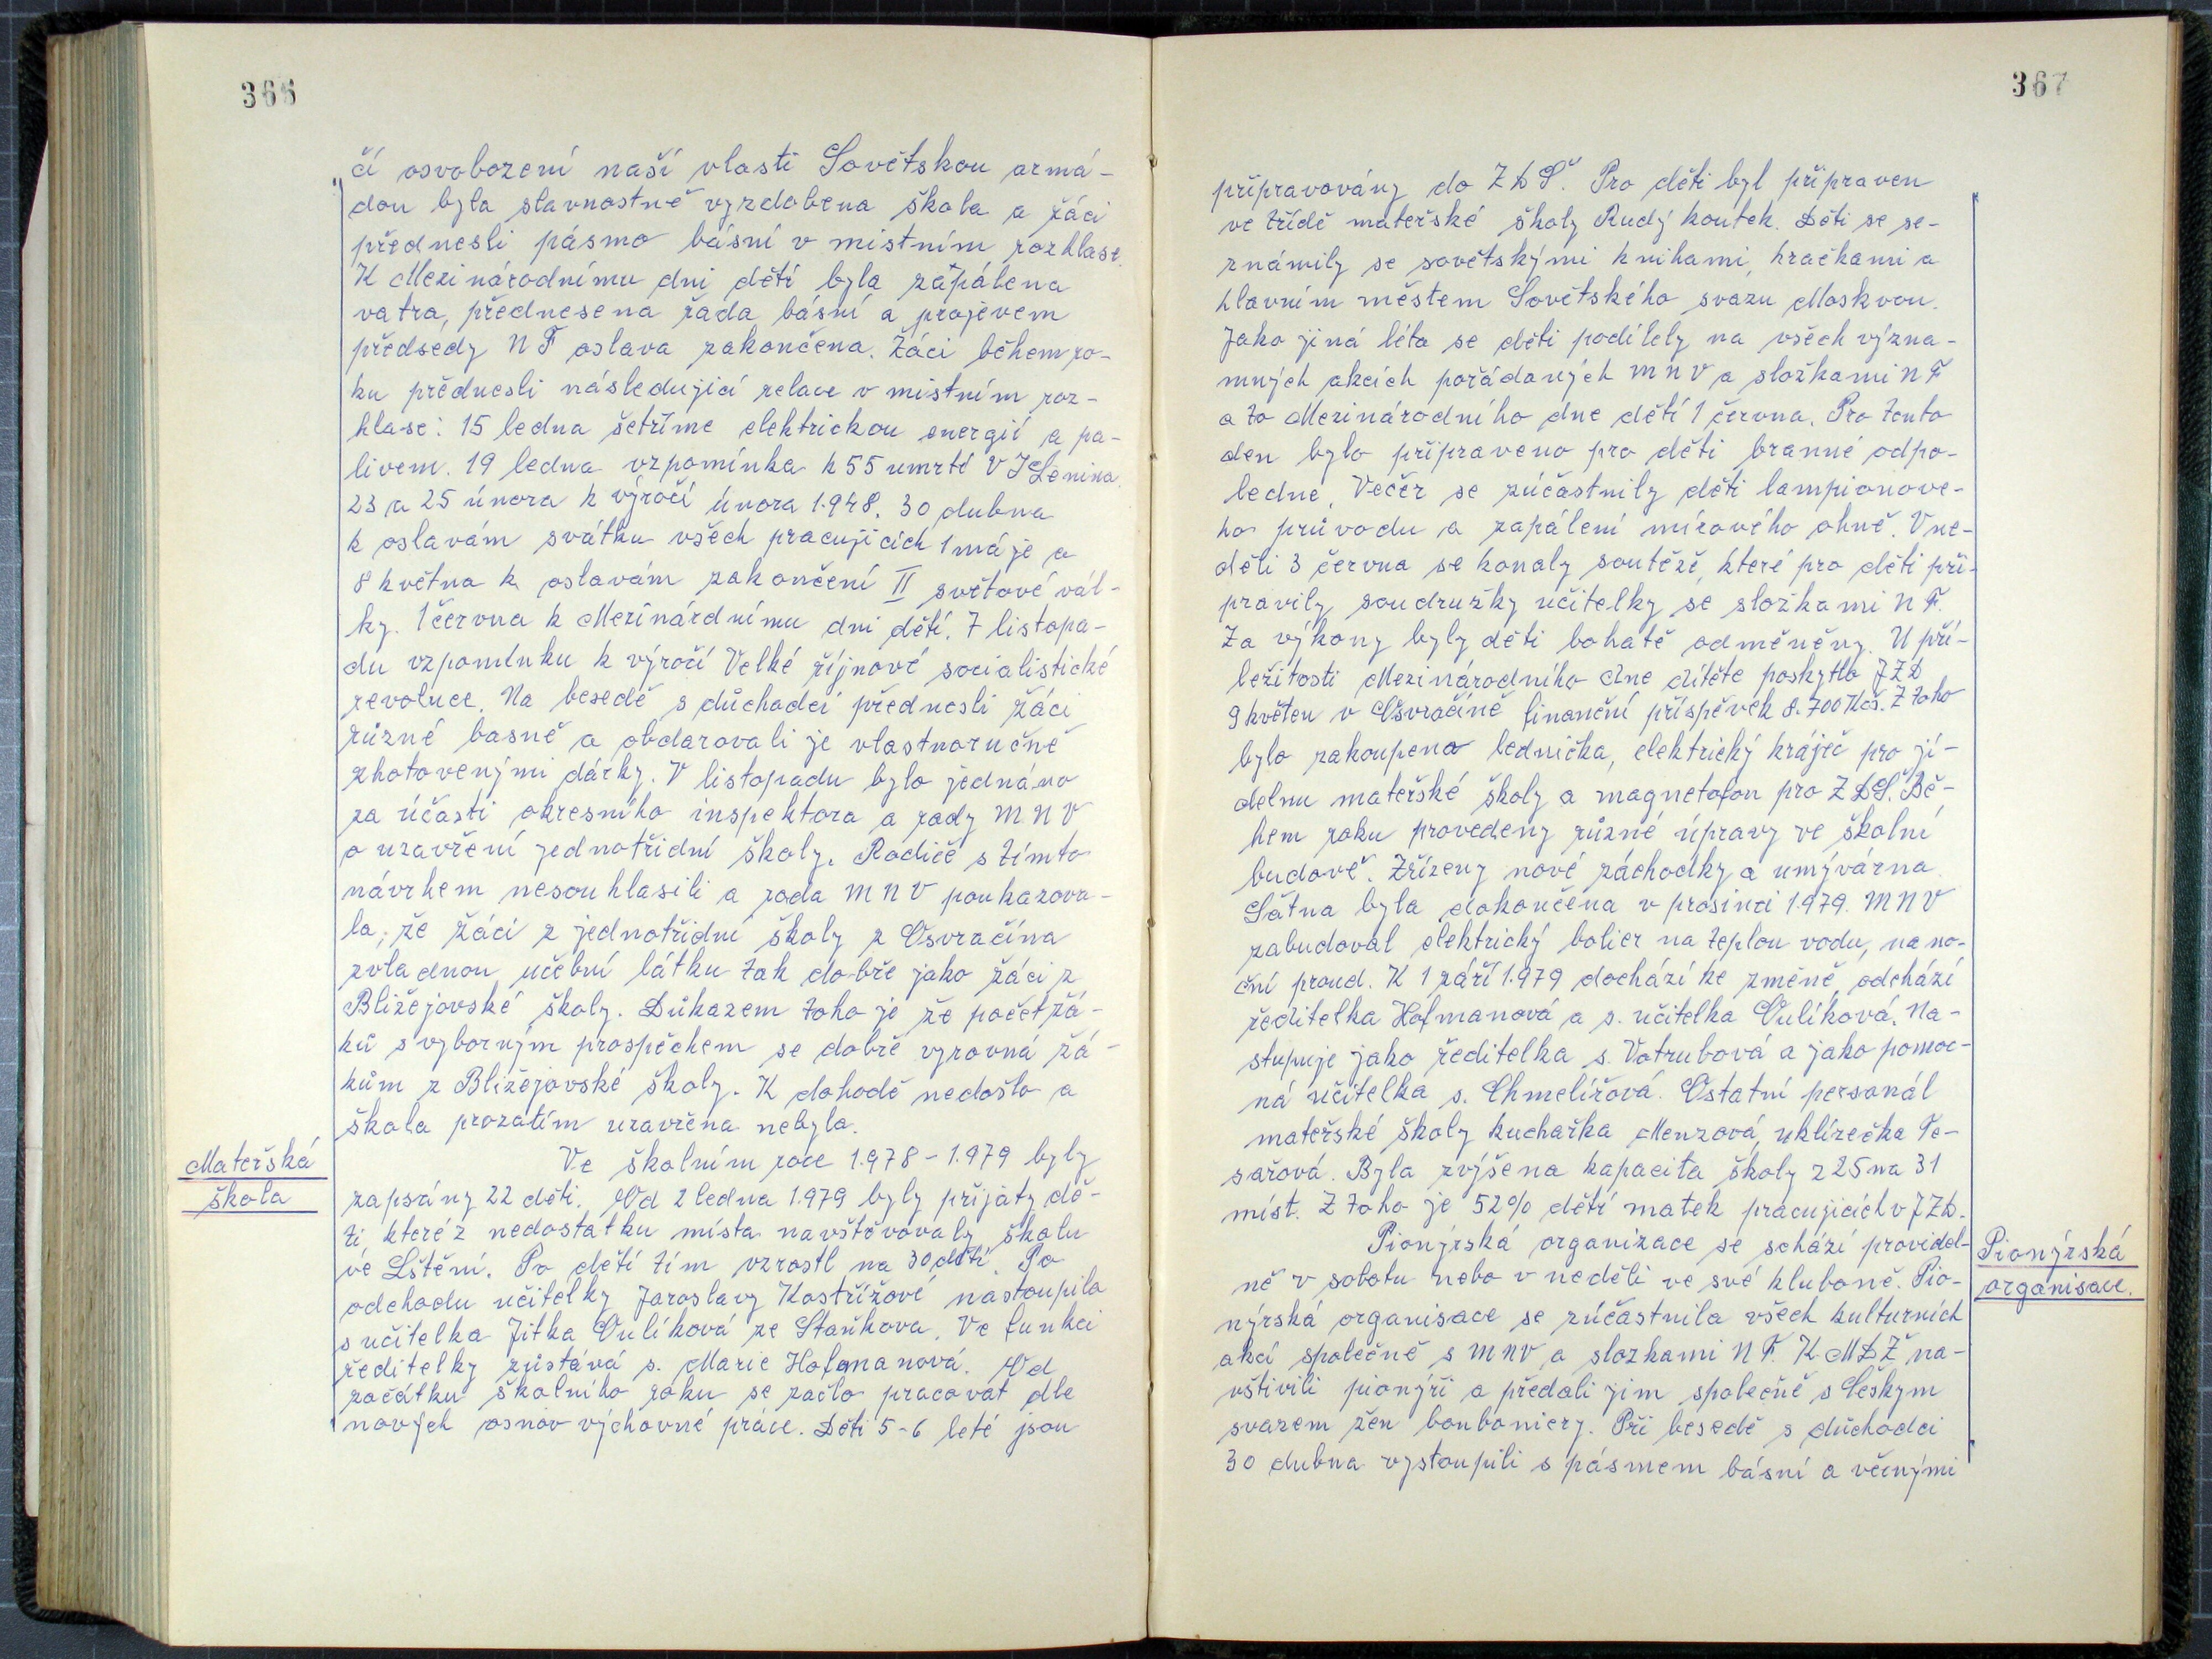 366
čí osvobození naší vlasti Sovětskou armá-
dou byla slavnostně vyzdobena škola a žáci
přednesli pásmo básní v místním rozhlase.
K Mezinárodnímu dni dětí byla zapálena
vatra, přednesena řada básní a projevem
předsedy NF oslava zakončena. Žáci během ro-
ku přednesli následující relace v místním roz-
hlase: 15 ledna šetříme elektrickou energií a pa-
livem. 19 ledna vzpomínka k 55 umrtí V I Lenina.
23 a 25 února k výročí února 1.948. 30 dubna
k oslavám svátku všech pracujících 1 máje a
8 května k oslavám zakončení II světové vál-
ky. 1 června k Mezinárdnímu dni dětí. 7 listopa-
du vzpomínku k výročí Velké říjnové socialistické
revoluce. Na besedě s důchodci přednesli žáci
různé basně a obdarovali je vlastnoručně
zhotovenými dárky. V listopadu bylo jednáno
za účasti okresního inspektora a rady MNV
o uzavření jednotřídní školy. Rodiče s tímto
návrhem nesouhlasili a rada MNV poukazova-
la, že žáci z jednotřídní školy z Osvračína
zvladnou učební látku tak dobře jako žáci z
Bližejovské školy. Důkazem toho je že počet žá-
ků s vyborným prospěchem se dobře vyrovná žá-
kům z Bližejovské školy. K dohodě nedošlo a
škola prozatím uzavřena nebyla.
Mateřská
škola
Ve školním roce 1.978 - 1.979 byly
zapsány 22 děti. Od 2 ledna 1.979 byly přijaty dě-
ti které z nedostatku místa navštěvovaly školu
ve Lštění. Po dětí tím vzrostl na 30 dětí. Po
odchodu učitelky Jaroslavy Kostřížové nastoupila
s učitelka Jitka Oulíková ze Staňkova. Ve funkci
ředitelky zůstává s. Marie Hofmanová. Od
začátku školního roku se začlo pracovat dle
nových osnov výchovné práce. Děti 5-6 leté jsou
367
připravovány do ZDŠ. Pro děti byl připraven
ve třídě mateřské školy Rudý koutek. Děti se se-
známily se sovětskými knihami, hračkami a
hlavním městem Sovětského svazu Moskvou.
Jako jiná léta se děti podílely na všech význa-
mných akcích pořádaných MNV a složkami NF
a to Mezinárodního dne dětí 1 června. Pro tento
den bylo připraveno pro děti branné odpo-
ledne. Večer se zúčastnily děti lampionove-
ho průvodu a zapálení mírového ohně. V ne-
děli 3 června se konaly soutěže, které pro děti při-
pravily soudružky učitelky se složkami NF.
Za výkony byly děti bohatě odměněny. U pří-
ležitosti Mezinárodního dne dítěte poskytlo JZD
9 květen v Osvračíně finanční příspěvek 8.700 Kčs. Z toho
bylo zakoupeno lednička, elektrický kráječ pro jí-
delnu mateřské školy a magnetofon pro ZDŠ. Bě-
hem roku provedeny různé úpravy ve školní
budově. Zřízeny nové záchodky a umývárna.
Šátna byla dokončena v prosinci 1.979. MNV
zabudoval elektrický bolier na teplou vodu, na no-
ční proud. K 1 září 1.979 dochází ke změně, odchází
ředitelka Hofmanová a s. učitelka Oulíková. Na-
stupuje jako ředitelka s. Votrubová a jako pomoc-
ná učitelka s. Chmelířová. Ostatní personál
mateřské školy kuchařka Menzová, uklízečka Te-
sařová. Byla zvýšena kapacita školy z 25 na 31
míst. Z toho je 52% dětí matek pracujících v JZD.
Pionýrská
organisace.
Pionýrská organizace se schází pravidel-
ně v sobotu nebo v neděli ve své klubovně. Pio-
nýrská organisace se zúčastnila všech kulturních
akcí společně s MNV a složkami NF. K MDŽ na-
vštivili pionýři a předali jim společně s Českym
svazem žen bonboniery. Při besedě s důchodci
30 dubna vystoupili s pásmem básní a věcnými